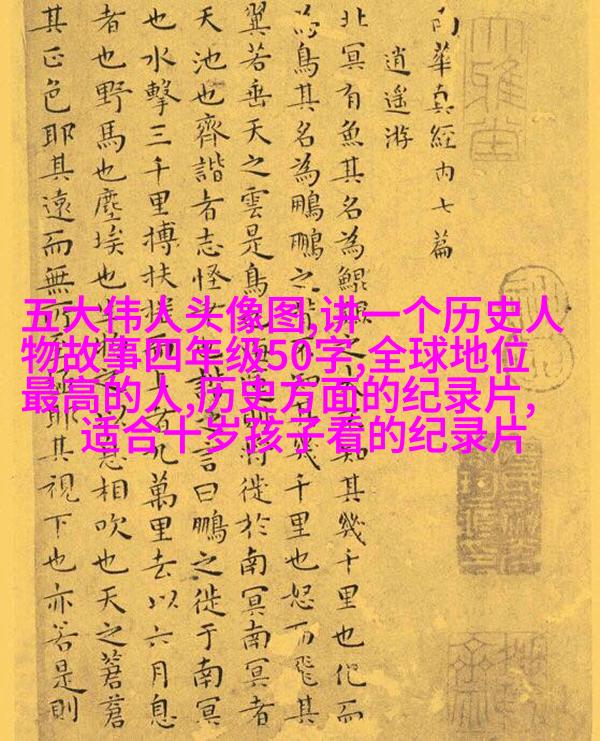 南華真經內七篇
逍遙游
北冥有魚其名為鯤 之 知其幾千里也化而
為鳥其名為鵬鵬之 其幾千里也怒而飛其
翼若垂天之雲是鳥 將徙於南冥南冥者
天池也齊諧者志怪 之言曰鵬之徙于南冥
也水擊三千里摶扶搖而上 九萬里去以六月息
者也野馬也塵埃也 息相吹也天之蒼蒼
其正色耶其遠而無 耶其視下也亦若是則
五大伟人头像图,讲一个历史人
物故事四年级50字,全球地位
最高的人,历史方面的纪录片,
适合十岁孩子看的纪录片